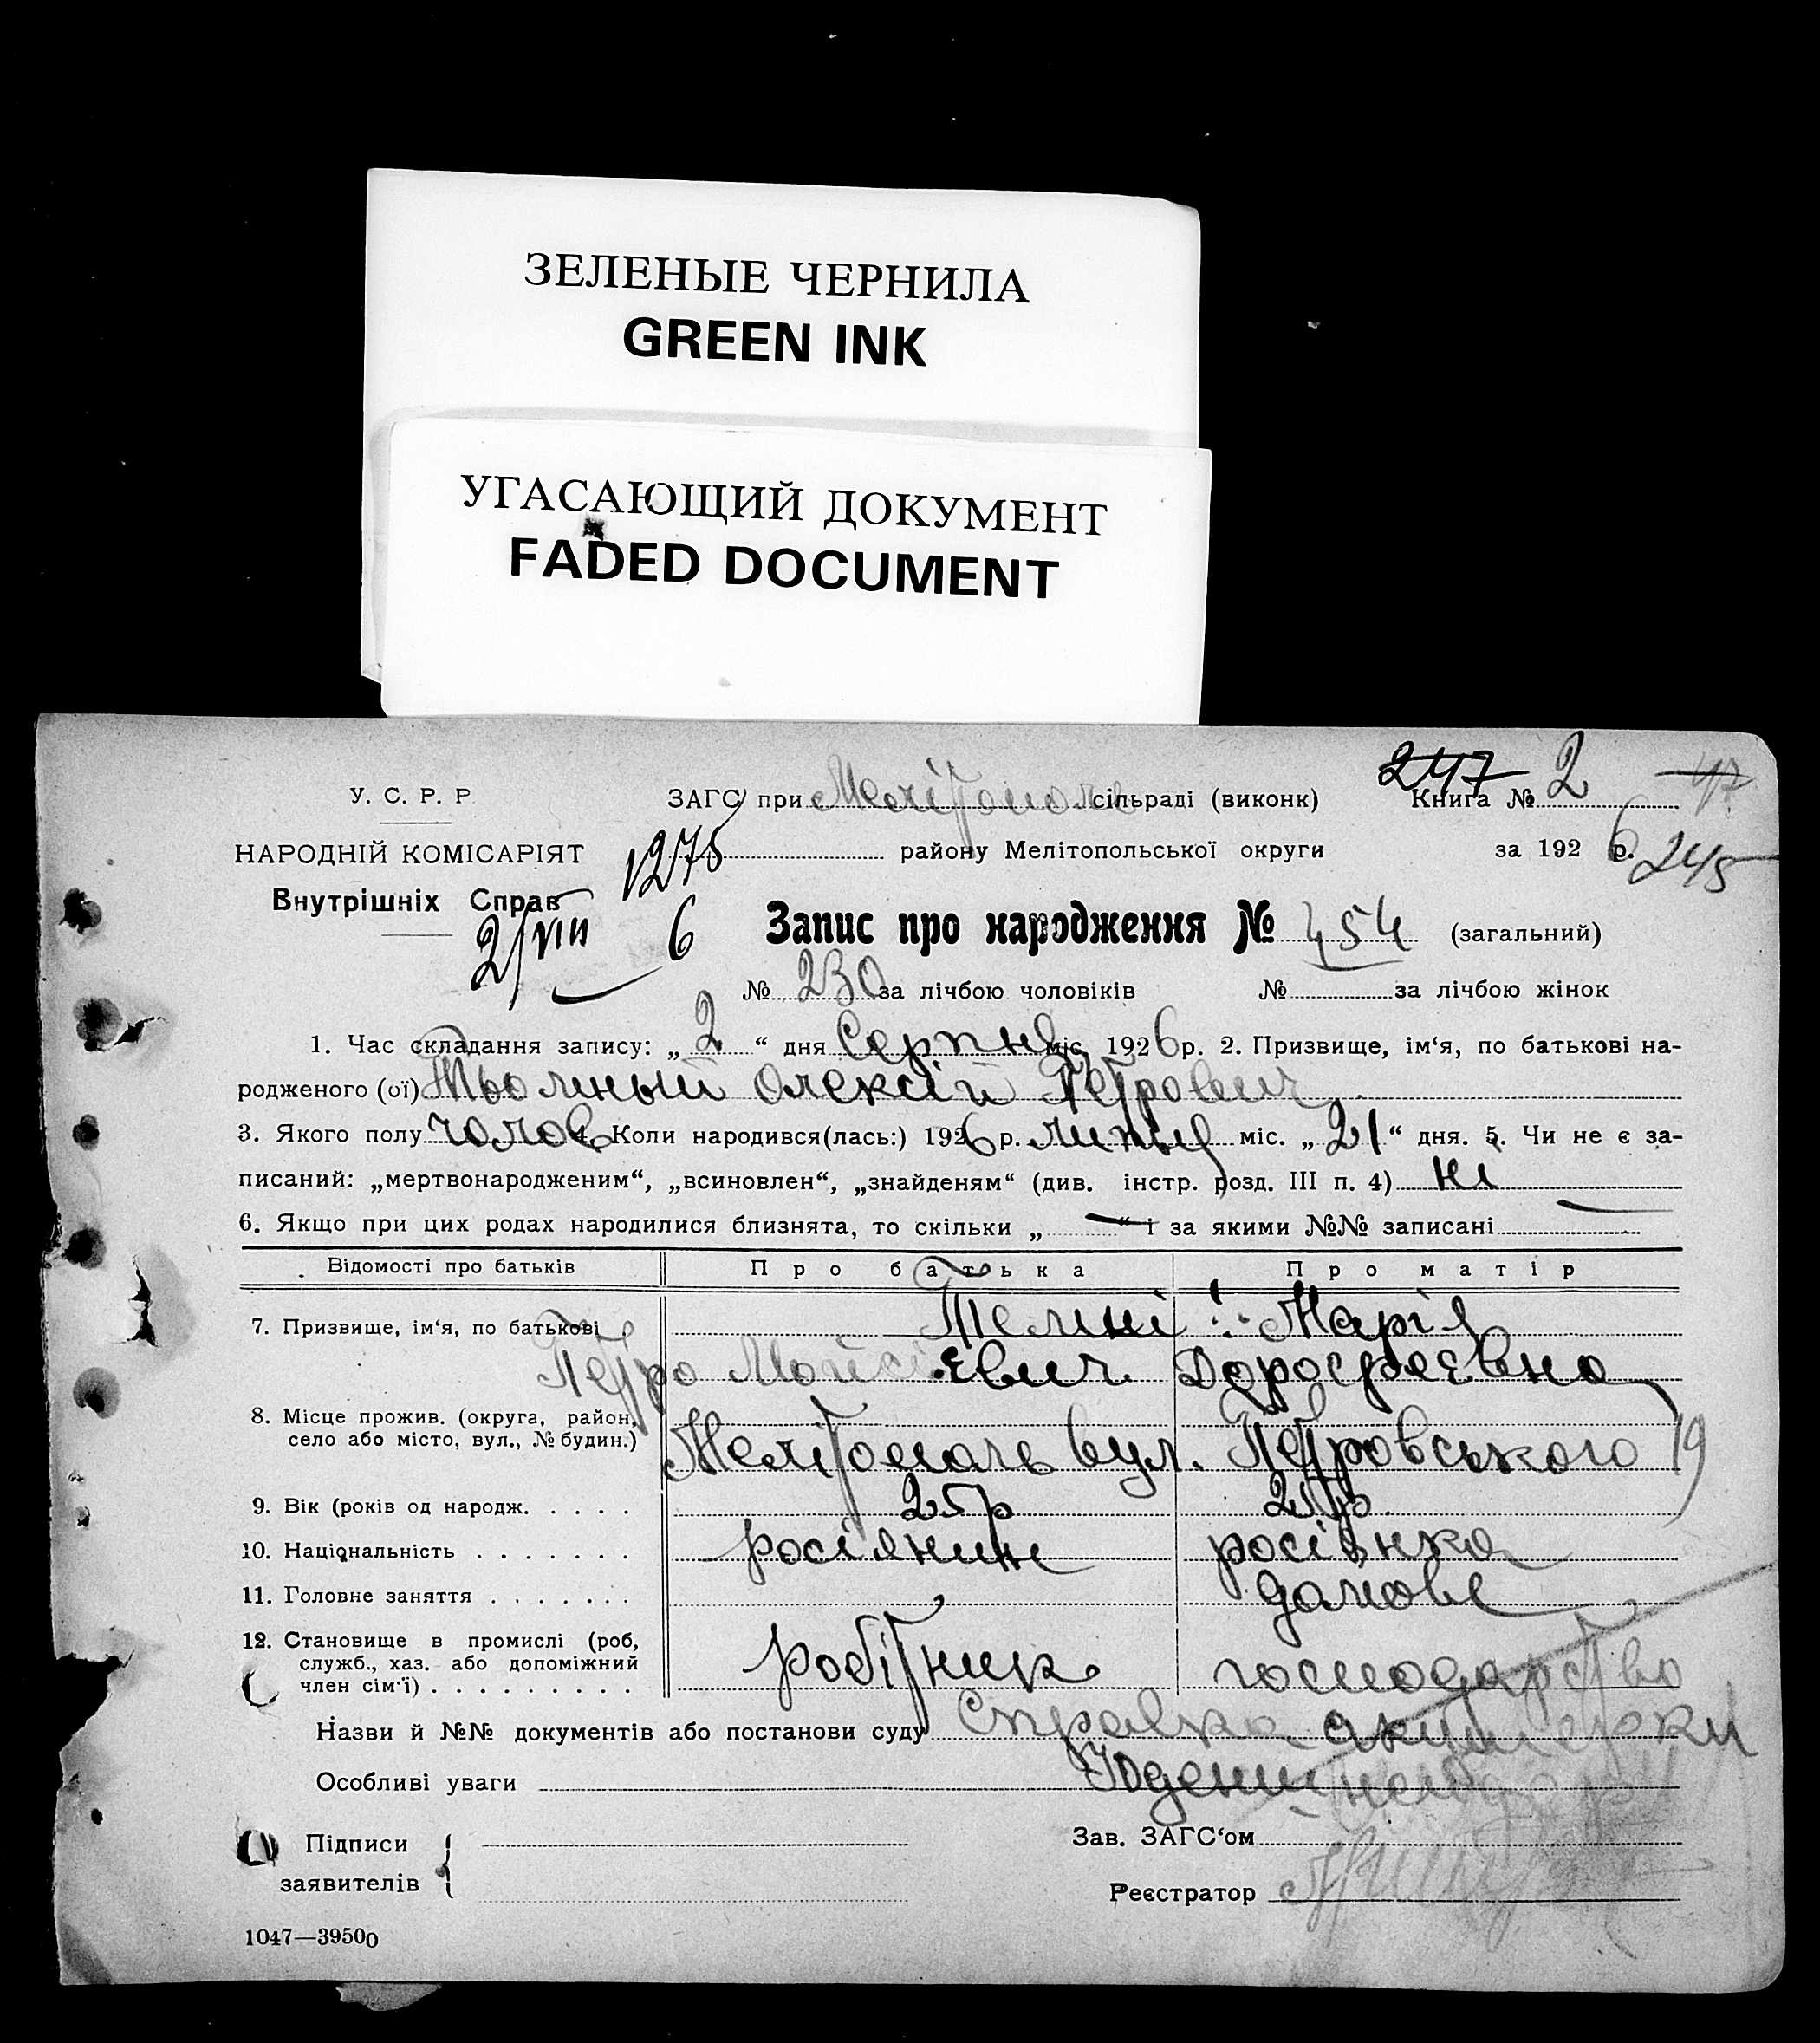 ЗЕЛЕНЫЕ ЧЕРНИЛА
GREEN INK
УГАСАЮЩИЙ ДОКУМЕНТ
FADED DOCUMENT
247 2 47
У. С. Р. Р. ЗАГС при Мелітополь сільраді (виконк) Книга №
НАРОДНІЙ КОМІСАРІЯТ 1275 району Мелітопольської округи за 1926 р. 245
Внутрішніх Справ
2/VIII 6 Запис про народження № 454 (загальний)
№ 230 за лічбою чоловіків № за лічбою жінок
1. Час складання запису: „2“ дня Серпня міс. 1926 р. 2. Призвище, ім‘я, по батькові на-
родженого (ої) Олексій Петрович
3. Якого полу чолов 4. Коли народився(лась:) 1926 р. липня міс. „21“ дня. 5. Чи не є за-
писаний: „мертвонародженим“, „всиновлен“, „знайденям“ (див. інстр. розд. III п. 4) ні
6. Якщо при цих родах народилися близнята, то скільки „ — “ і за якими №№ записані —
Відомості про батьків Про батька Про матір
7. Призвище, ім‘я, по батькові Темні Марія
Петро Мойсієвич Дорофеєвна
8. Місце прожив. (округа, район,
село або місто, вул., № будин.) Мелітополь вул. Петровського 19
9. Вік (років од народж. . . . . 25 р 25 р.
10. Національність . . . . . . . росіянин росіянка
11. Головне заняття . . . . . . . домове
12. Становище в промислі (роб,
служб., хаз. або допоміжний
член сім‘ї) . . . . . . . . . робітник господарство
Назви й №№ документів або постанови суду Справка акушерки
Особливі уваги
Підписи Зав. ЗАГС‘ом
заявителів Реєстратор
1047—39500